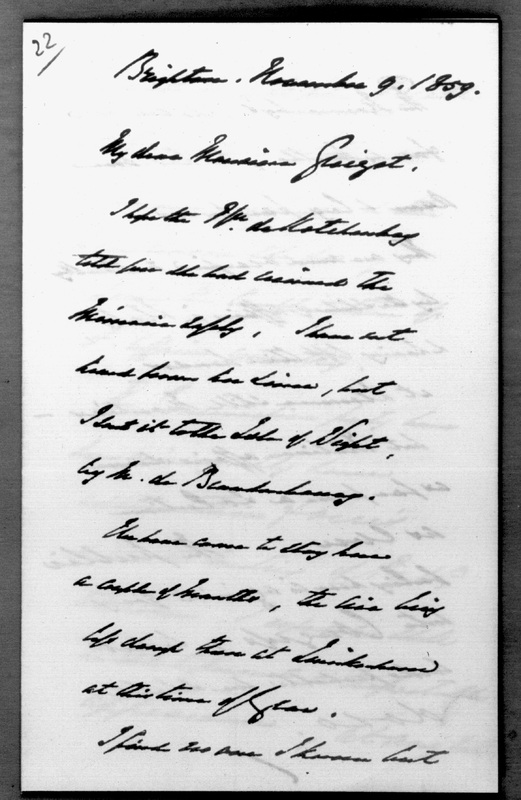 22/
Brighton. November 9. 1859.
My dear Monsieur
I hope the Pss. de Kotchoubey
told you she had received the
Memoirs safely. I have not
heard from her since, but
I sent it to the Isle of Wight,
by M. de
We have come to stay here
a couple of months, the air being
less damp than at Twickenham
at this time of Year.
I find no one I know but